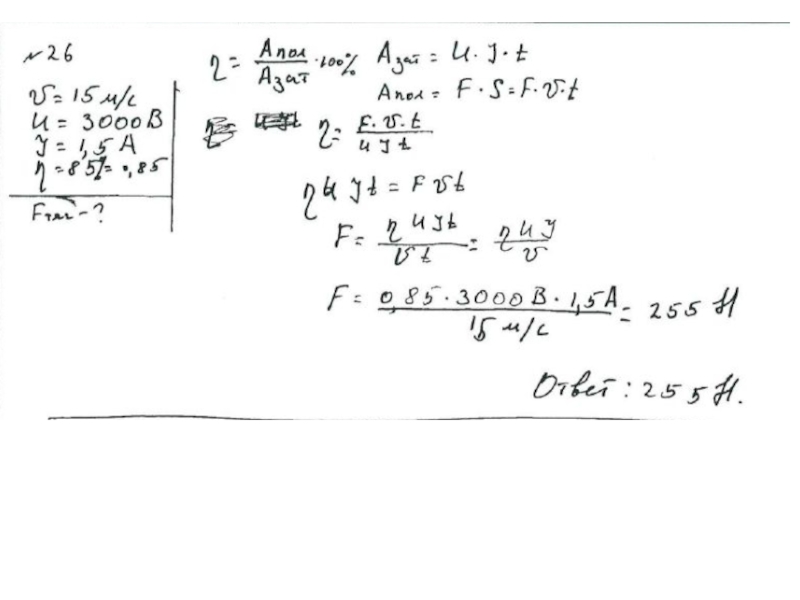 №26
υ = 15 м/с
U = 3000 В
J = 1,5 А
η = 85% = 0,85
Fтяг - ?
η = Aпол / Aзат · 100% Aзат = U · J · t
Aпол = F · S = F · υ · t
η = F · υ · t / U J t
η U J t = F υ t
F = η U J t / υ t = η U J / υ
F = 0,85 · 3000 В · 1,5 А / 15 м/с = 255 Н
Ответ: 255 Н.